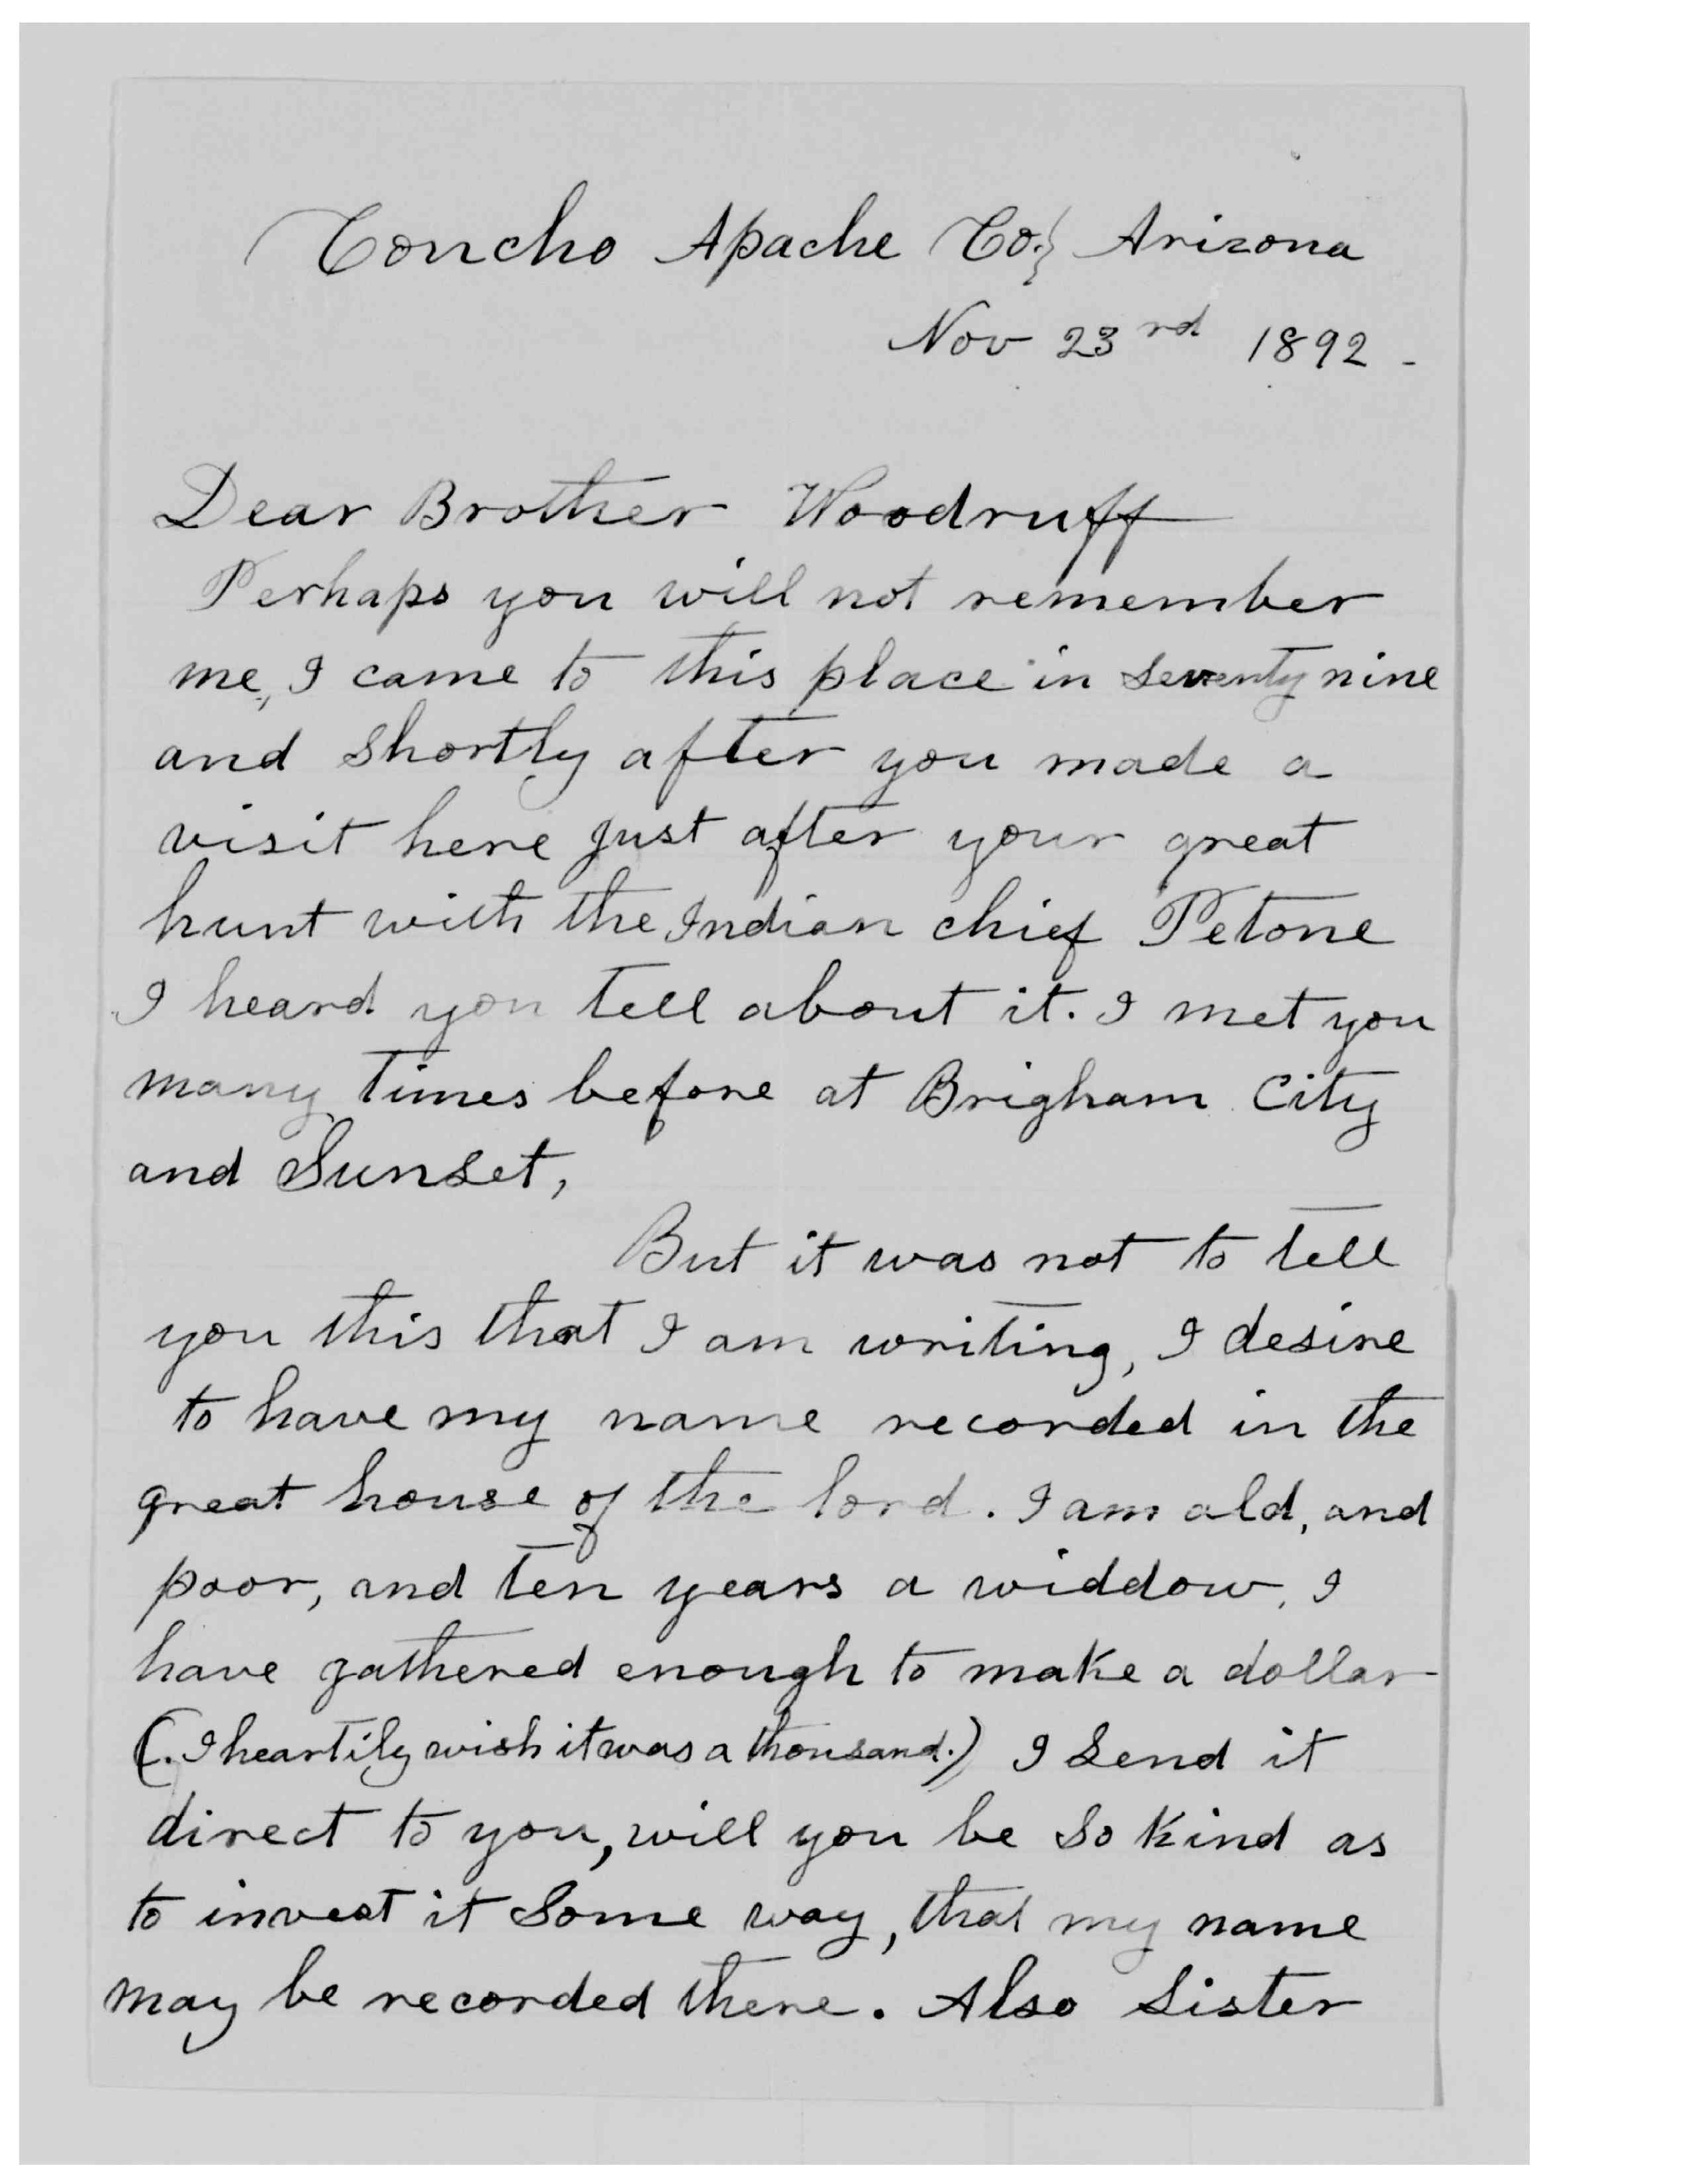 Concho Apache Co.} Arizona
Nov 23rd 1892 -
Dear Brother Woodruff
Perhaps you will not remember
me, I came to this place in seventy nine
and shortly after you made a
visit here just after your great
hunt with the Indian chief Petone
I heard you tell about it. I met you
many times before at Brigham City
and Sunset,
But it was not to tell
you this that I am writing, I desire
to have my name recorded in the
great house of the lord. I am old, and
poor, and ten years a widdow, I
have gathered enough to make a dollar
(. I heartily wish it was a thousand.) I send it
direct to you, will you be so kind as
to invest it some way, that my name
may be recorded there. Also Sister